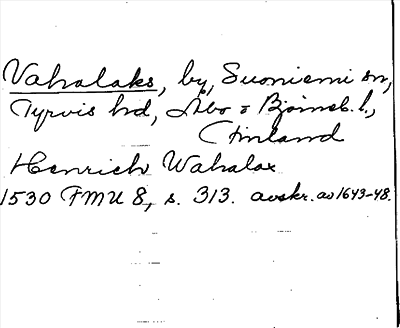 Vahalaks, by, Suoniemi sn,
Tyrvis hd, Åbo o Björneb. l.,
Finland
Henrich Wahalax
1530 FMU 8, s. 313. avskr. av 1643-48.